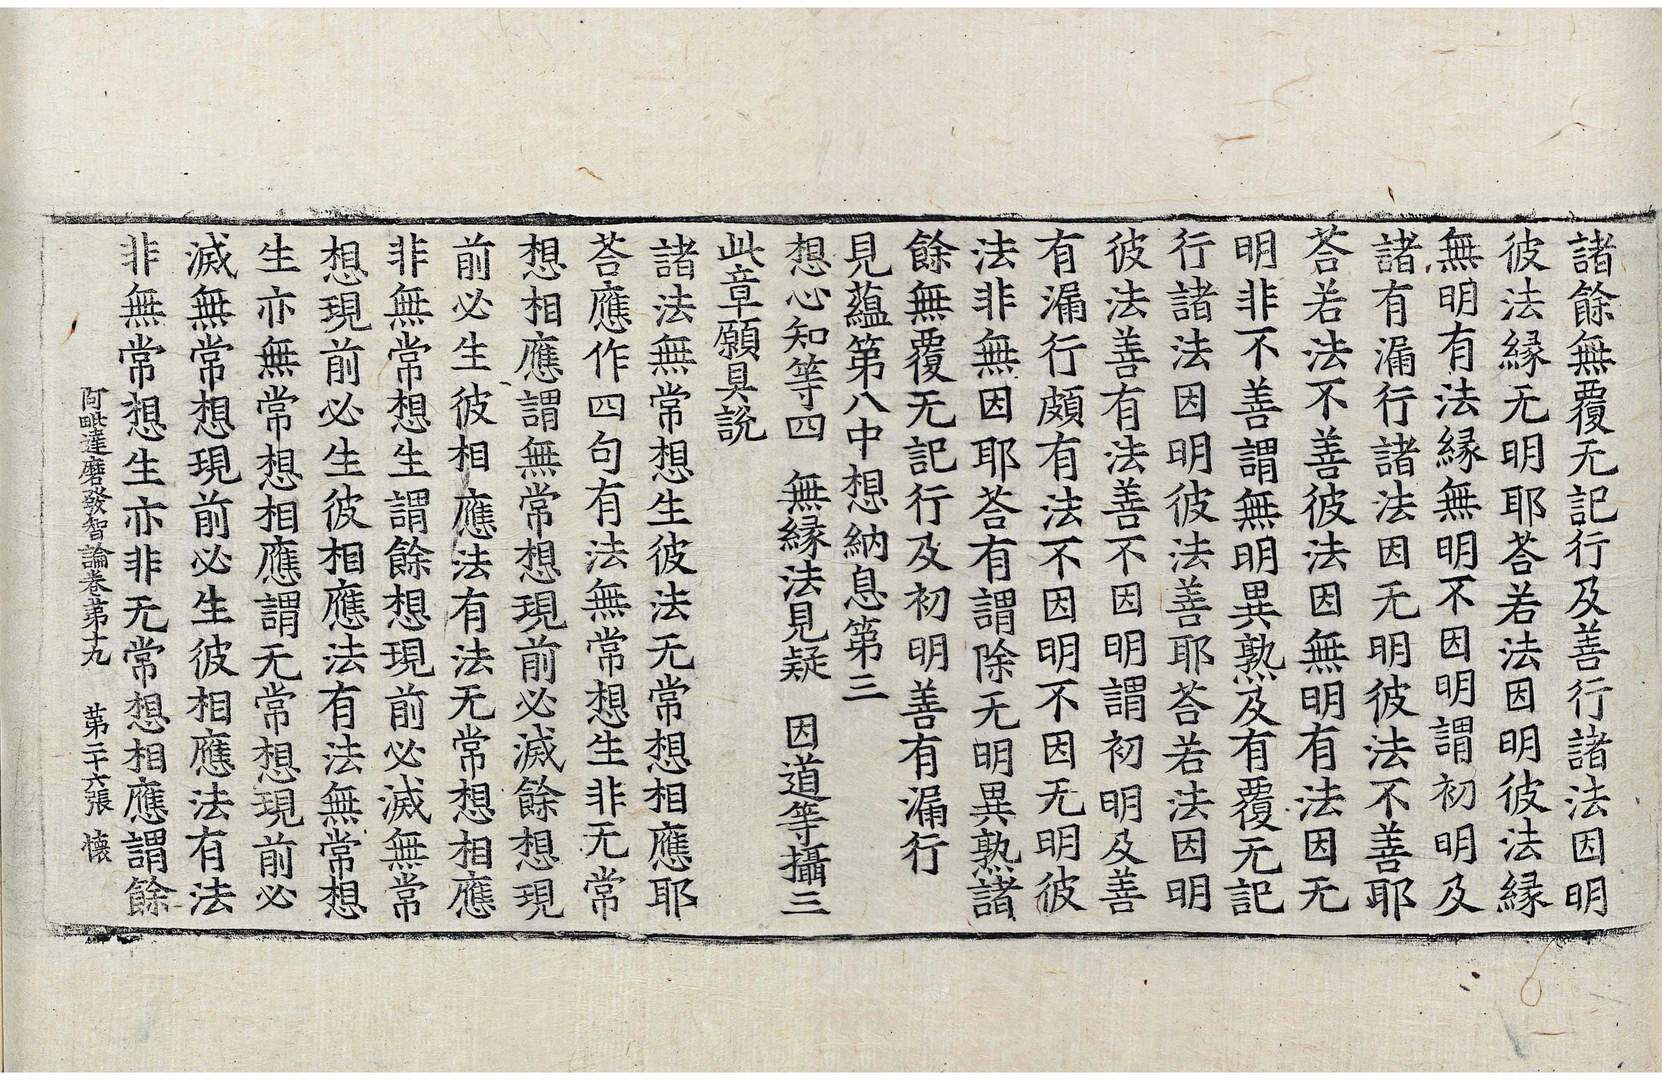 諸餘無覆无記行及善行諸法因明
彼法縁无明耶荅若法因明彼法縁
無明有法縁無明不因明謂初明及
諸有漏行諸法因无明彼法不善耶
荅若法不善彼法因無明有法因无
明非不善謂無明異熟及有覆无記
行諸法因明彼法善耶荅若法因明
彼法善有法善不因明謂初明及善
有漏行頗有法不因明不因无明彼
法非無因耶荅有謂除无明異熟諸
餘無覆无記行及初明善有漏行
見蘊第八中想納息第三
想心知等四　無縁法見疑　因道等攝三
此章願具説
諸法無常想生彼法无常想相應耶
荅應作四句有法無常想生非无常
想相應謂無常想現前必滅餘想現
前必生彼相應法有法无常想相應
非無常想生謂餘想現前必滅無常
想現前必生彼相應法有法無常想
生亦無常想相應謂无常想現前必
滅無常想現前必生彼相應法有法
非無常想生亦非无常想相應謂餘
阿毗達磨發智論卷第十九　第二十六張　懷